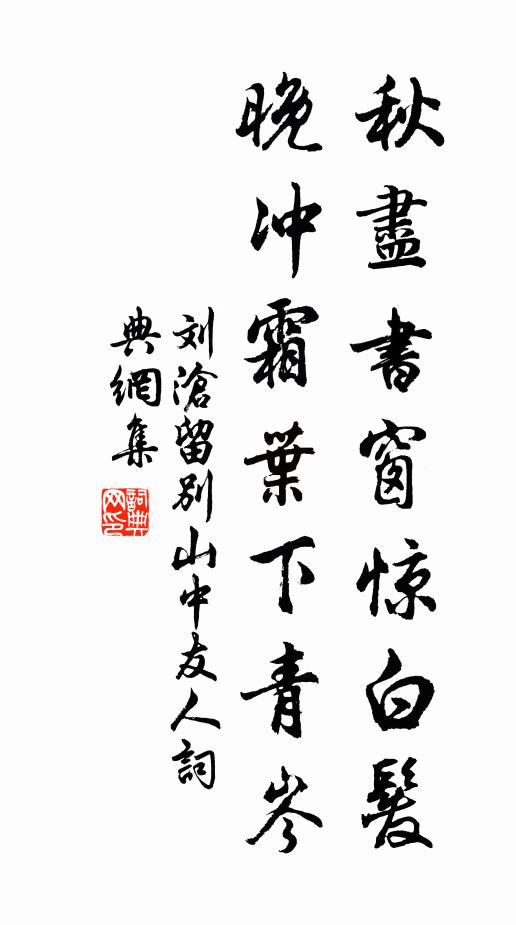 秋盡書窗惊白髮
晚冲霜葉下青岑
刘滄留别山中友人詞
典網集
詞典网印